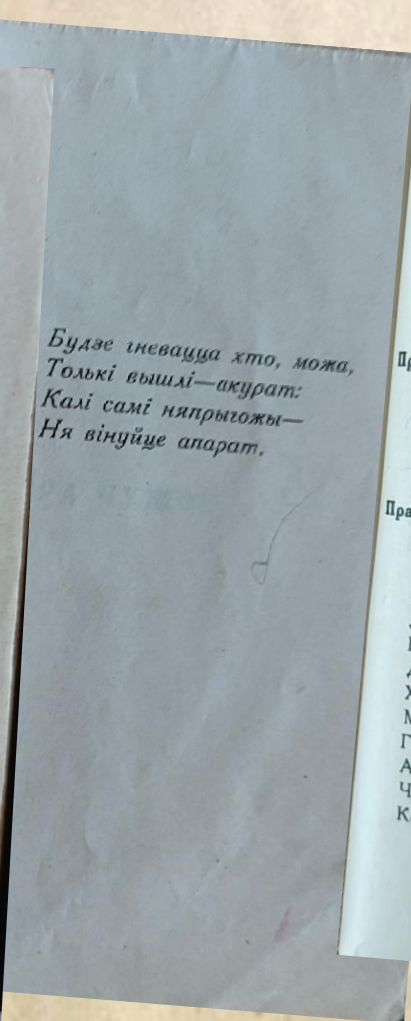 Будзе гневацца хто, можа,
Толькі вышлі—акурат:
Калі самі няпрыгожы—
Ня вінуйце апарат.